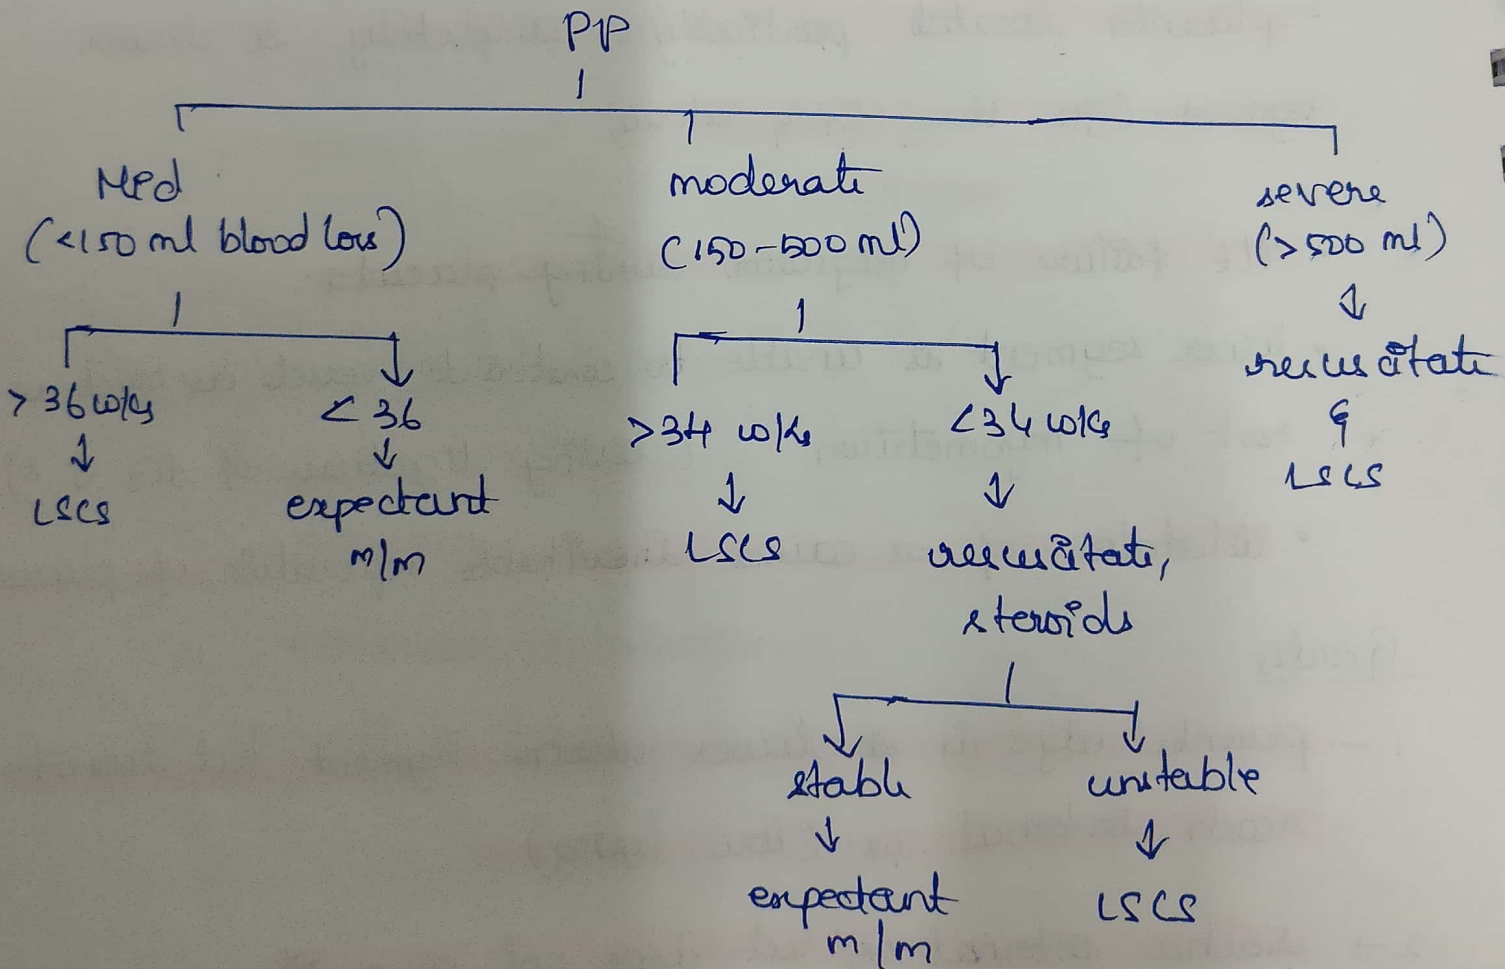 PP
Mild
(<150 ml blood loss)
>36 wks
↓
LSCS
<36
↓
expectant
m/m
moderate
(150-500 ml)
>34 wks
↓
LSCS
<34 wks
↓
resuscitate,
steroids
stable
↓
expectant
m/m
unstable
↓
LSCS
severe
(>500 ml)
↓
resuscitate
&
LSCS